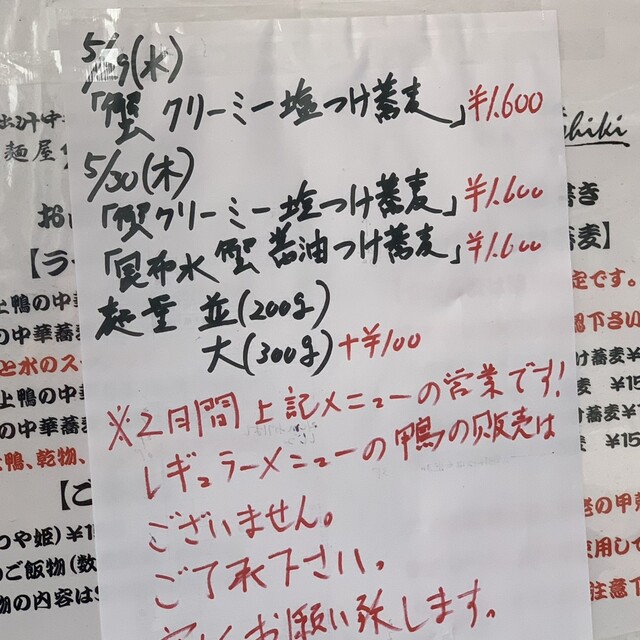 5/29(水)
「蟹クリーミー塩つけ蕎麦」¥1.600
5/30(木)
「蟹クリーミー塩つけ蕎麦」¥1.600
「昆布水 蟹 醤油つけ蕎麦」¥1.600
麺量 並(200g)
大(300g)+¥100
※2日間上記メニューの営業です!
レギュラーメニューの鴨の販売は
ございません。
ご了承下さい。
お願い致します。
麺屋
【ラー
上鴨の中華
の中華蕎麦
と水のス
上鴨の中華
の中華蕎麦
鴨、乾物、
【ご
つや姫)¥1
のご飯物(数
物の内容は
hiki
書き
蕎麦】
定です。
認下さい
け蕎麦¥1
¥15
け蕎麦¥
麦 ¥15
の甲殻
使用して
注意下